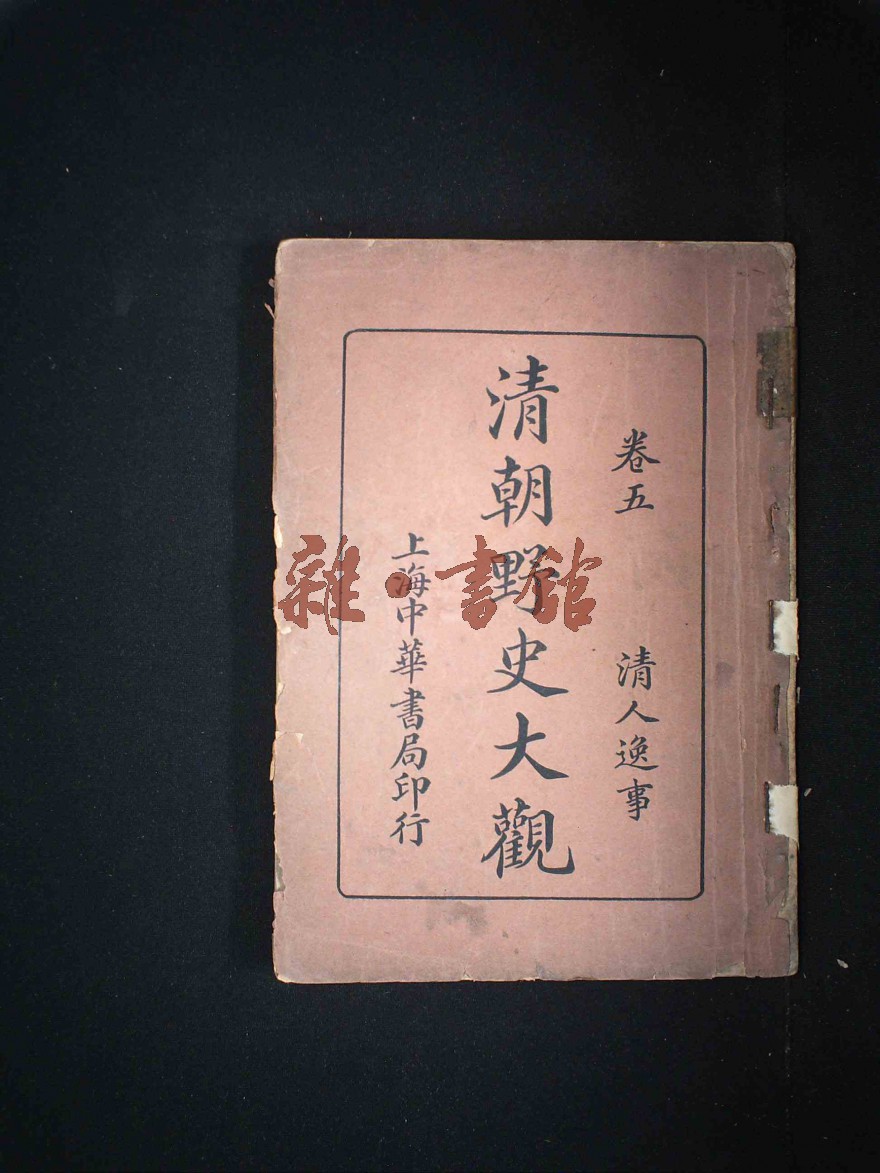 卷五　清人逸事
清朝野史大觀
上海中華書局印行
雜·書館